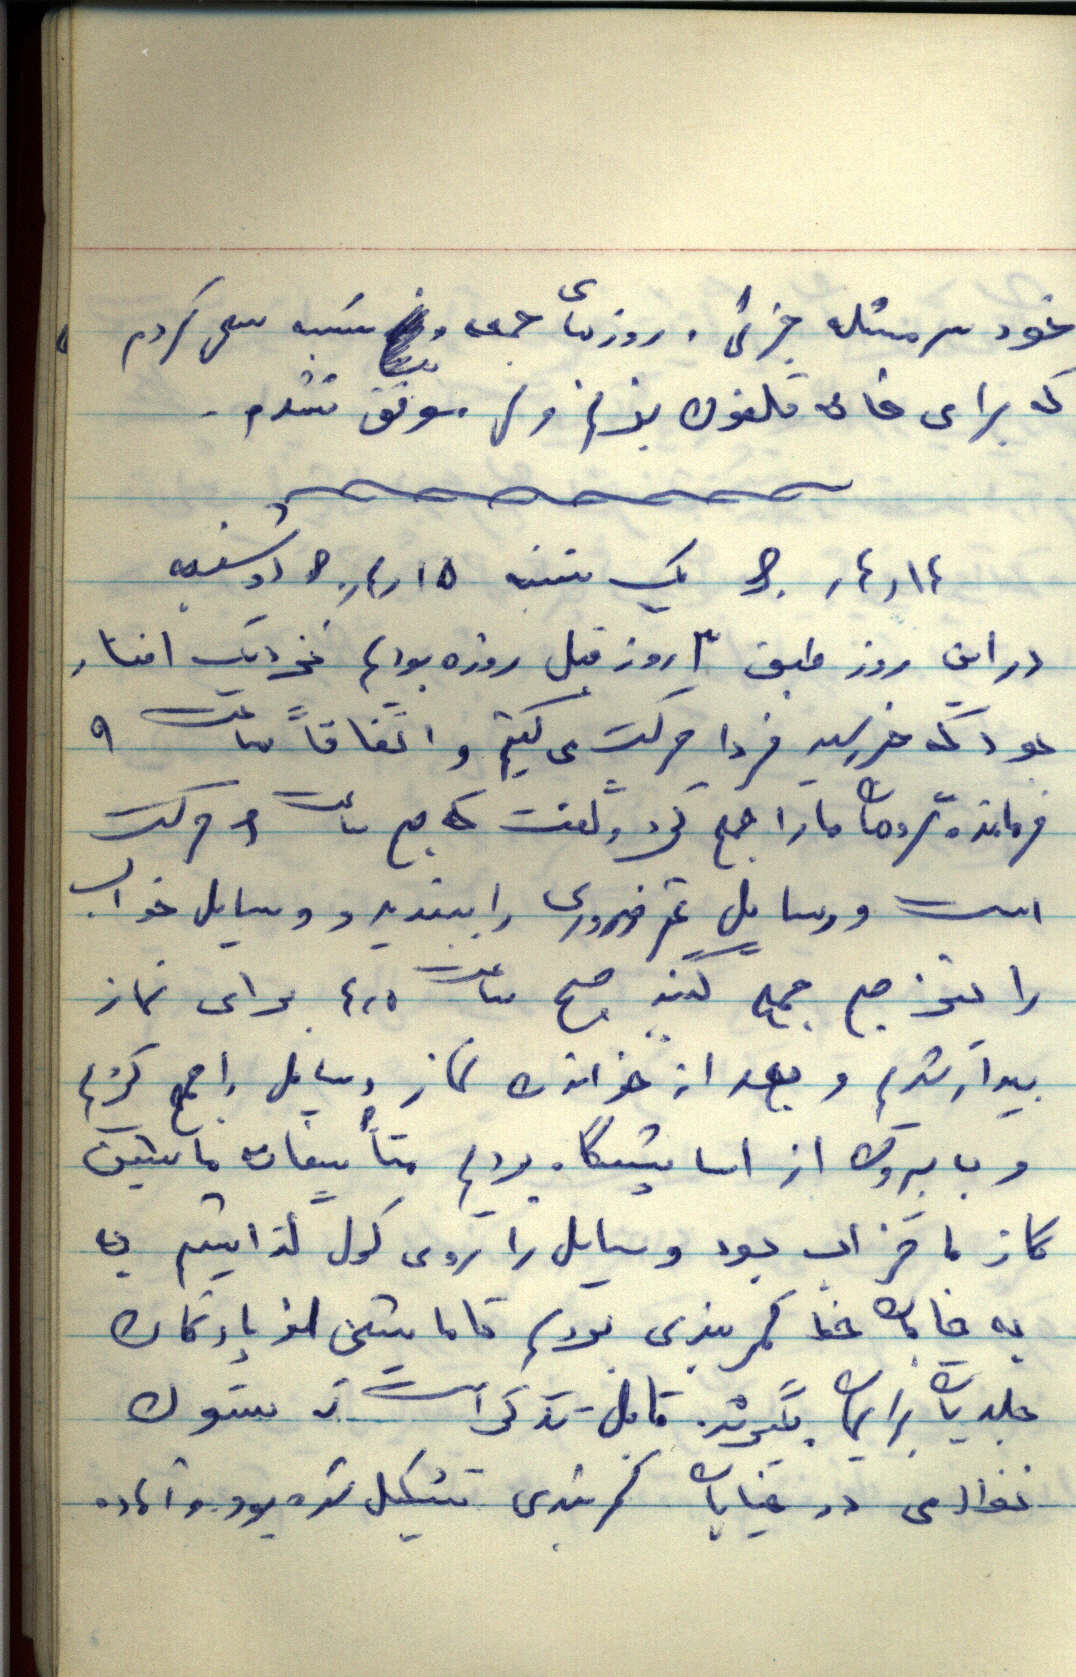 خود سر مسئله جزئی . روزهای جمعه و پنج شنبه سعی کردم
که برای خانه تلفون بزنم ولی موفق نشدم .
یک شنبه ۱۵ر۴ر دوشنبه
در این روز طبق ۳ روز قبل روزه بودیم نزدیک افطار
بود که خبر رسید فردا حرکت می کنیم و اتّفاقاً ساعت ۹
فرمانده گروهان ما را جمع کرد و گفت که صبح ساعت حرکت
است و وسایل غیر ضروری را ببندید و وسایل خواب
را نیز صبح جمع کنید صبح ساعت ۴٫۵ برای نماز
بیدار شدیم و بعد از خواندن نماز وسایل را جمع کردیم
و با بیرون از آسایشگاه بردیم متأسفانه ماشین
گاز ما خراب بود وسایل را روی کول گذاشتیم
به خیابان کمربندی بردیم تا ماشین از پادگان
جلدیان برایمان بگیرند. قابل تذکر است که ستون
نظامی در خیابان کمربندی تشکیل شده بود و آماده